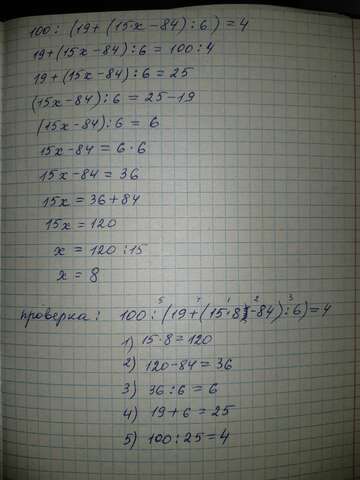 100 : (19 + (15·x − 84) : 6) = 4
19 + (15x − 84) : 6 = 100 : 4
19 + (15x − 84) : 6 = 25
(15x − 84) : 6 = 25 − 19
(15x − 84) : 6 = 6
15x − 84 = 6 · 6
15x − 84 = 36
15x = 36 + 84
15x = 120
x = 120 : 15
x = 8
5 4 1 2 3
проверка: 100 : (19 + (15·8 − 84) : 6) = 4
1) 15 · 8 = 120
2) 120 − 84 = 36
3) 36 : 6 = 6
4) 19 + 6 = 25
5) 100 : 25 = 4